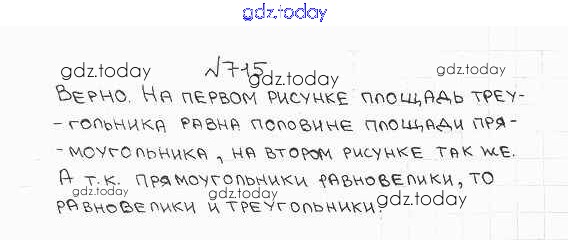 gdz.today
№715
gdz.today
gdz.today
ВЕРНО. НА ПЕРВОМ РИСУНКЕ ПЛОЩАДЬ ТРЕУ-
-ГОЛЬНИКА РАВНА ПОЛОВИНЕ ПЛОЩАДИ ПРЯ-
-МОУГОЛЬНИКА, НА ВТОРОМ РИСУНКЕ ТАК ЖЕ.
А Т.К. ПРЯМОУГОЛЬНИКИ РАВНОВЕЛИКИ, ТО
gdz.today
gdz.today
gdz.today
РАВНОВЕЛИКИ И ТРЕУГОЛЬНИКИ.
gdz.today